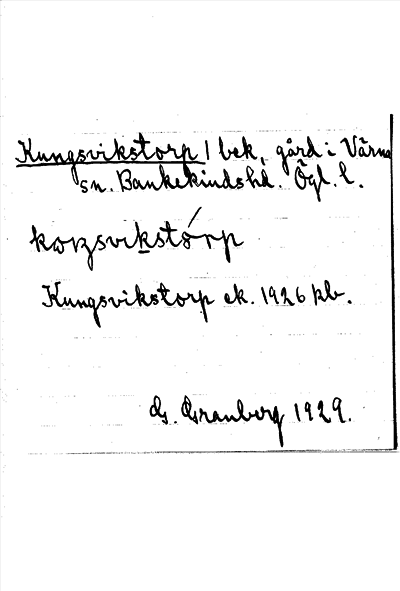 Kungsvikstorp / bek, gård i Värna
sn. Bankekinds hd. Ögl. l.
Kungsvikstorp ek. 1926 kb.
G. Granberg 1929.